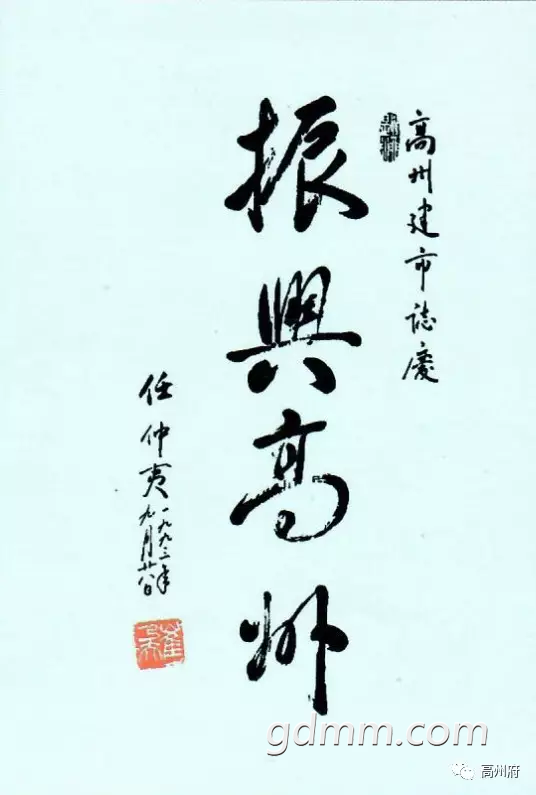 高州建市誌慶
振興高州
任仲夷
一九九三年
九月廿八日
gdmm.com
高州府